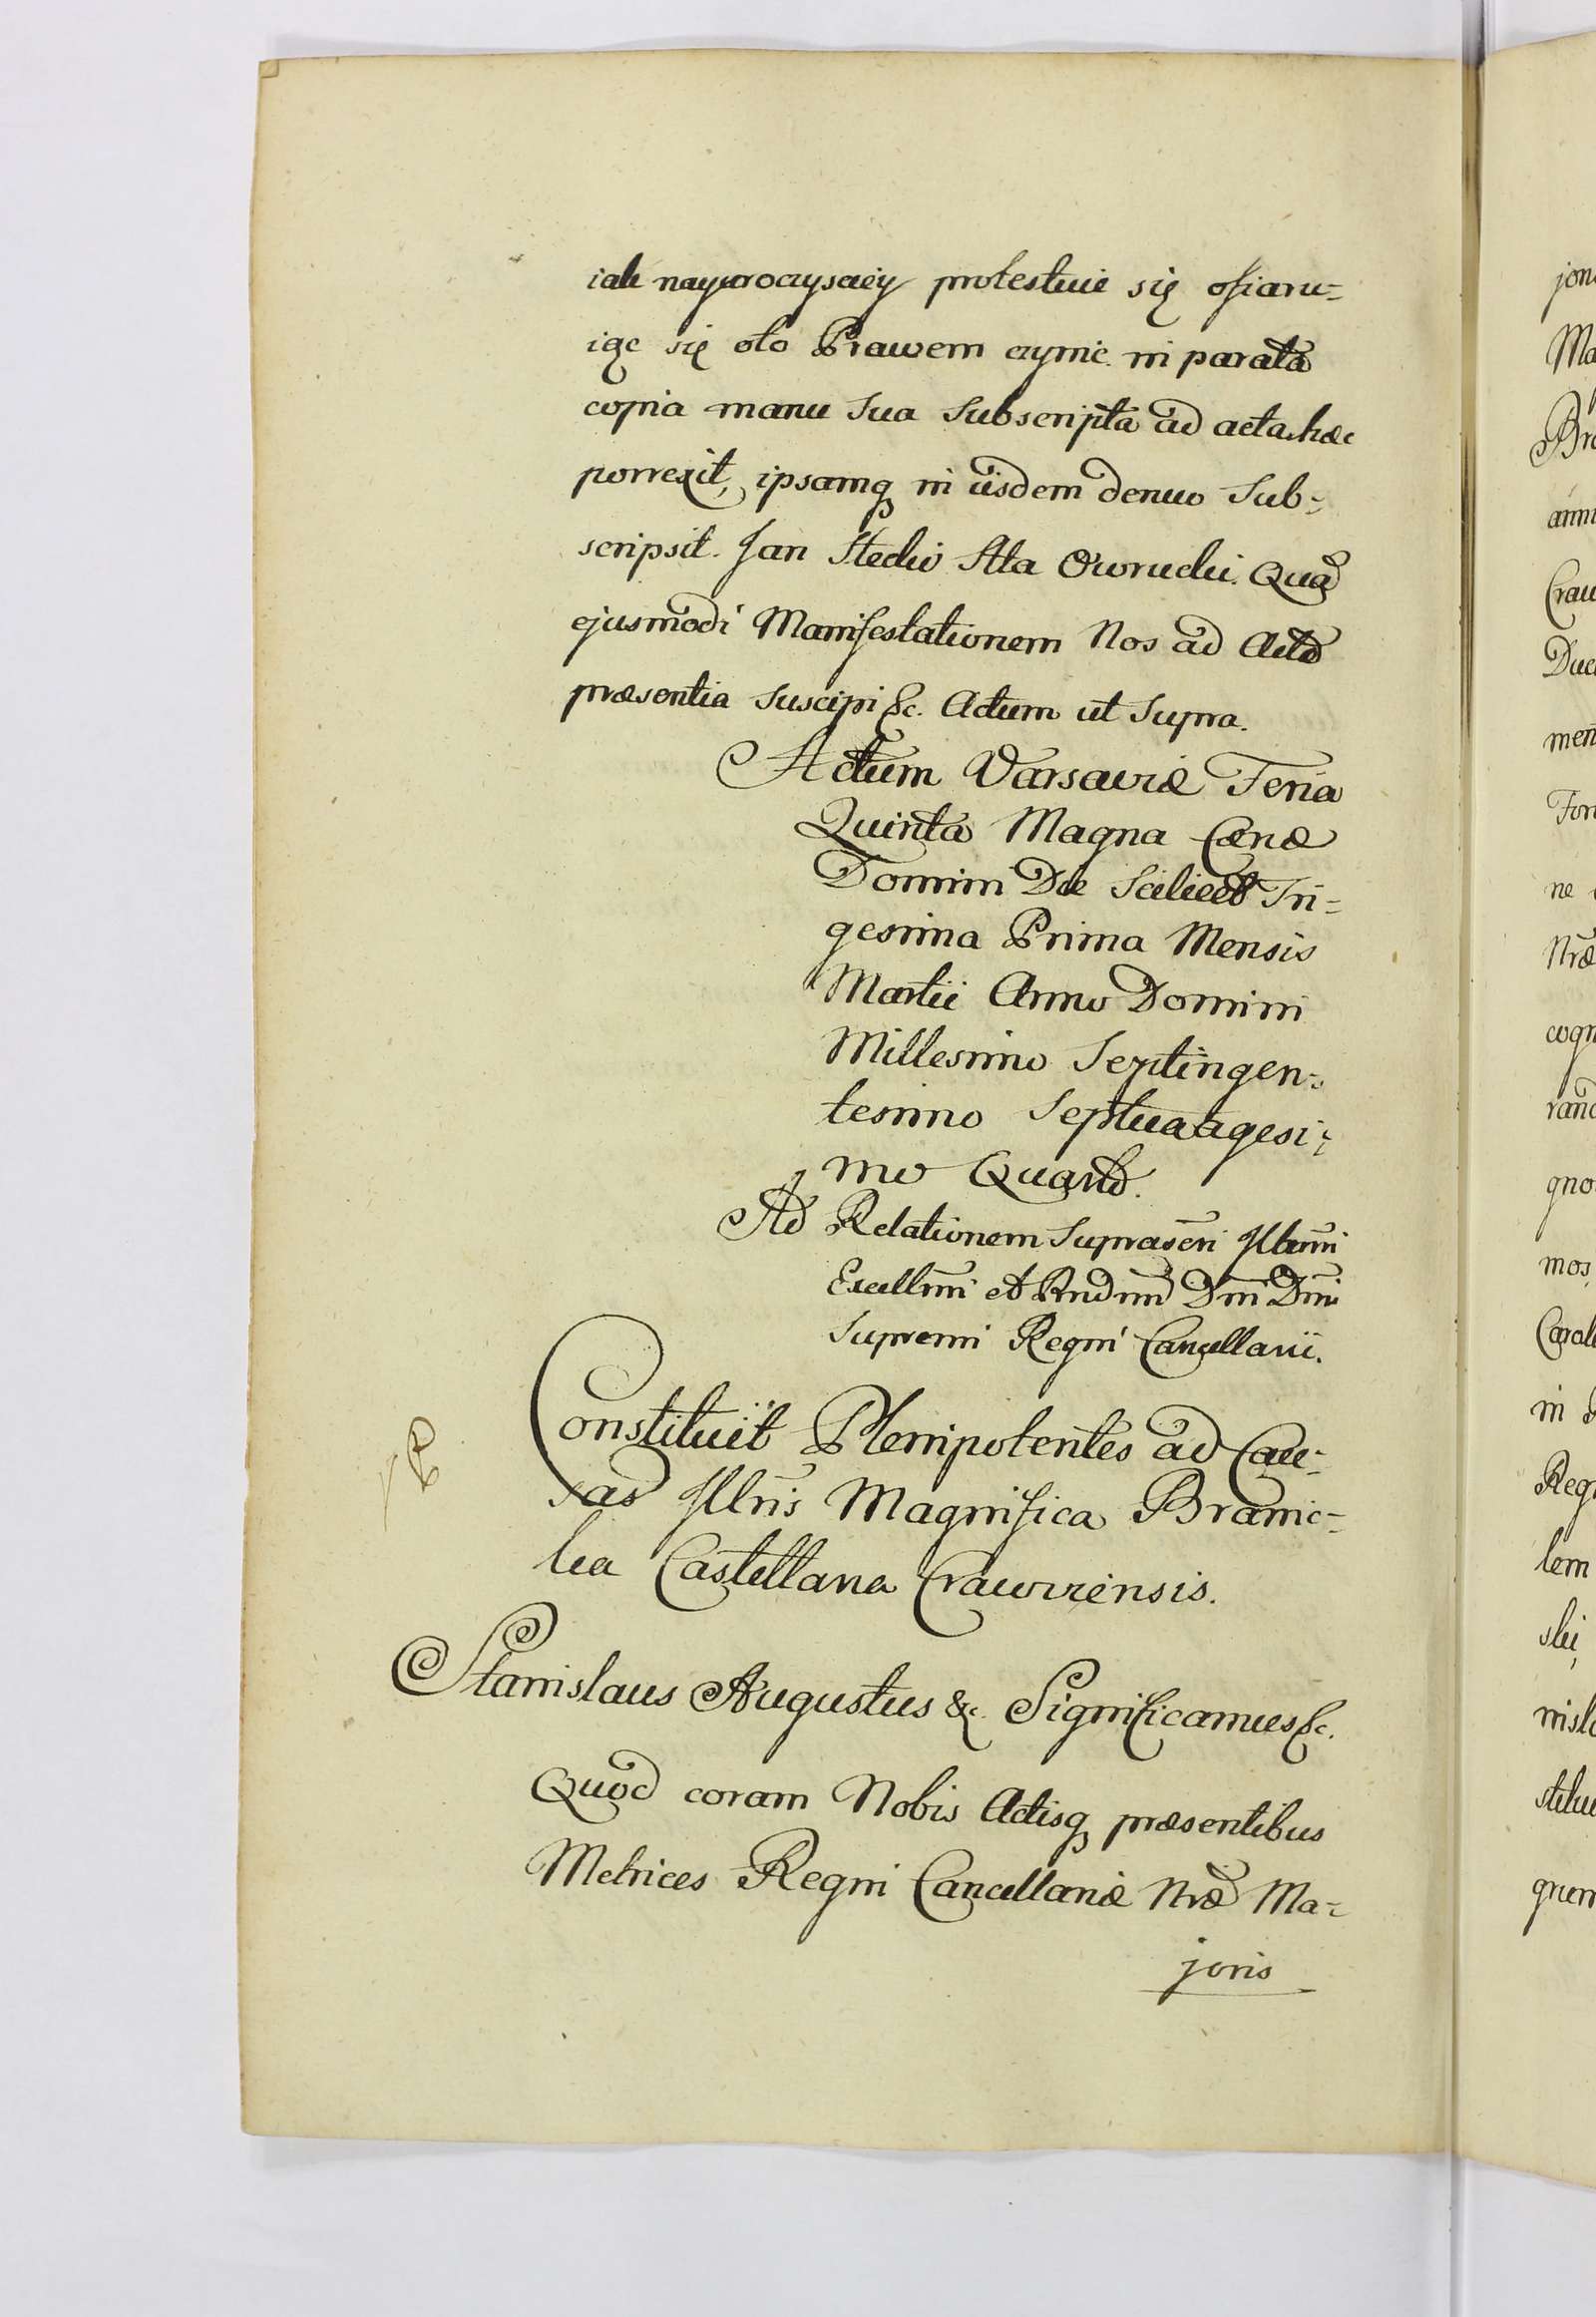 iak nayuroczyściey protestuie się ofiaru=
iąc się oto Prawem czynić. in parata
copia manu sua subscripta ad acta hæc
porrexit, ipsamq in iisdem denuo Sub=
scripsit. Jan Stecki Stta Owrucki. Quã
ejusmodi Manifestationem Nos ad Acta
præsentia suscipi &c. Actum ut Supra.
Actum Varsaviæ Feria
Quinta Magna Cænæ
Domini Die Scilicet Tri=
gesima Prima Mensis
Martii Anno Domini
Millesimo Septingen=
tesimo Septuagesi=
mo Quarto.
Ad Relationem Suprascri Illmi
Excellmi et Rndmi Dni Dni
Supremi Regni Cancellarii.
Constituit Plenipotentes ad Cau=
sas Illris Magnifica Branic=
ka Castellana Cracoviensis.
Stanislaus Augustus &c. Significamus &c.
Quod coram Nobis Actisq præsentibus
Metrices Regni Cancellariæ Nræ Ma=
joris
jon
Ma
Bra
anni
Crac
Duc
men
For
ne
Nræ
cogn
rand
gno
mos
Carol
in
Reg
lem
ski,
nisl
stitu